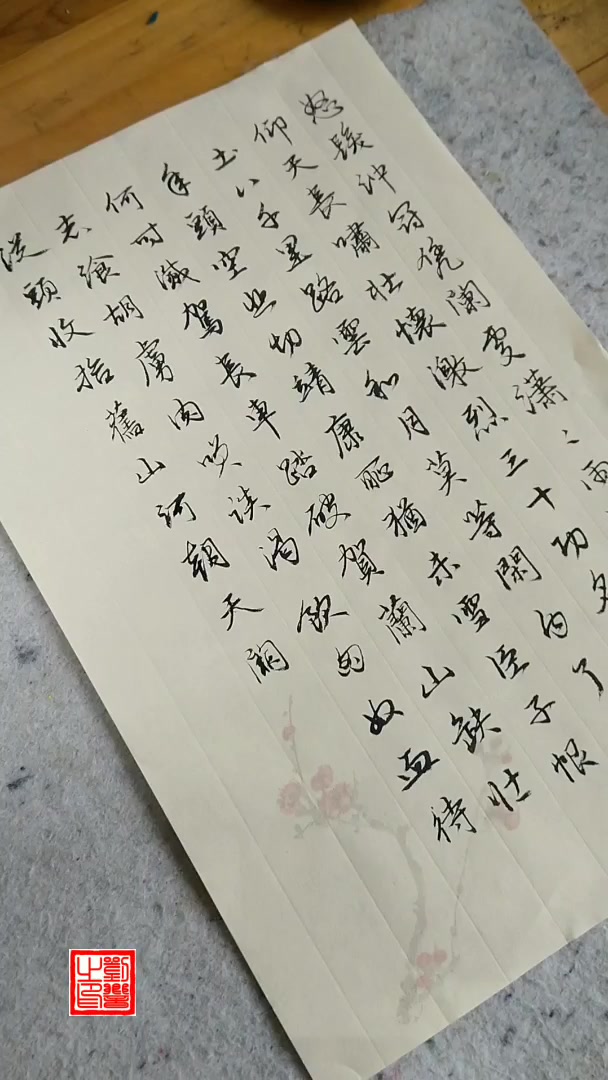 怒髮沖冠凭闌處瀟々雨
仰天長嘯壯懷激烈三十功名
土八千里路雲和月莫等閑白了
年頭空悲切靖康恥猶未雪臣子恨
何時滅駕長車踏破賀蘭山缺壯
志飡胡虜肉笑談渴飲匈奴血待
從頭收拾舊山河朝天闕